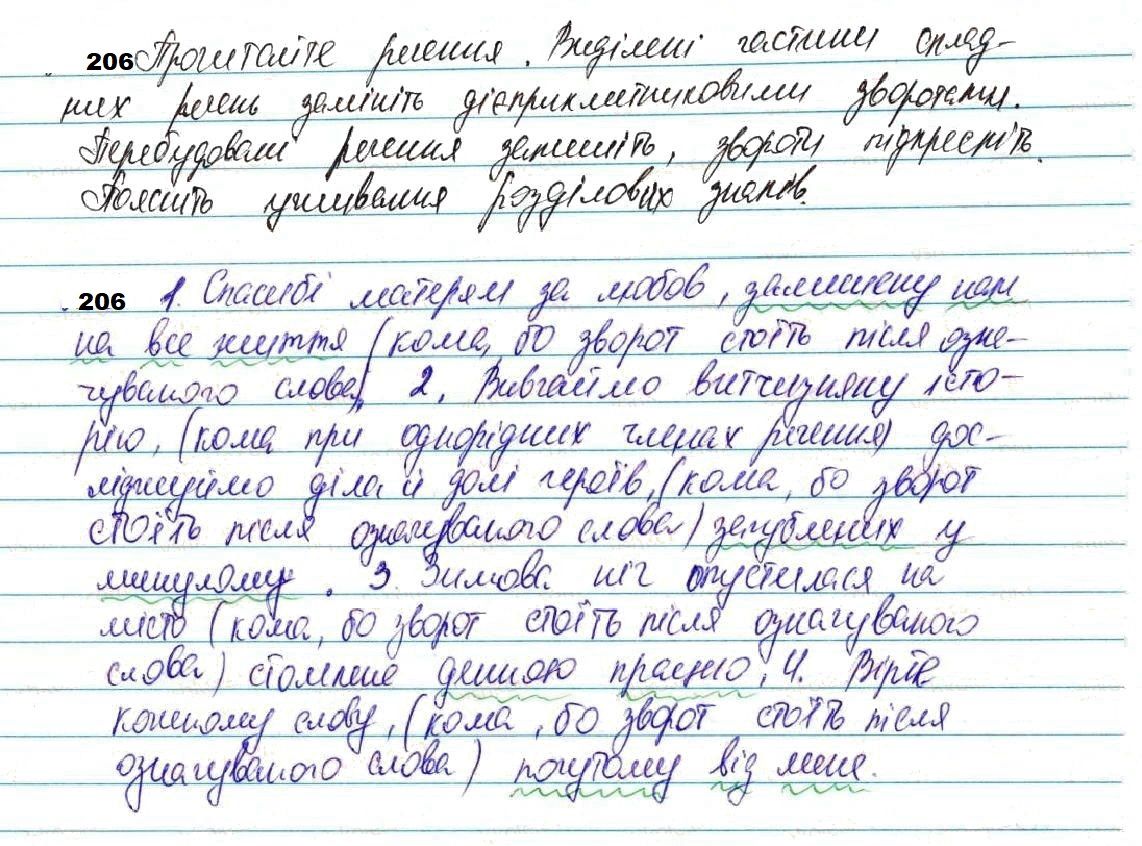 206 Прочитайте речення. Виділені частини склад-
них речень замініть дієприкметниковими зворотами.
Перебудовані речення запишіть, звороти підкресліть.
Поясніть уживання розділових знаків.
206 1. Спасибі матерям за любов, залишену нам
на все життя (кома, бо зворот стоїть після озна-
чуваного слова). 2. Вивчаймо вітчизняну істо-
рію, (кома при однорідних членах речення) дос-
ліджуймо діла й долі героїв, (кома, бо зворот
стоїть після означуваного слова) загублених у
минулому. 3. Зимова ніч опустилася на
місто (кома, бо зворот стоїть після означуваного
слова) стомлене денною працею, 4. Вірте
кожному слову, (кома, бо зворот стоїть після
означуваного слова) почутому від мене.